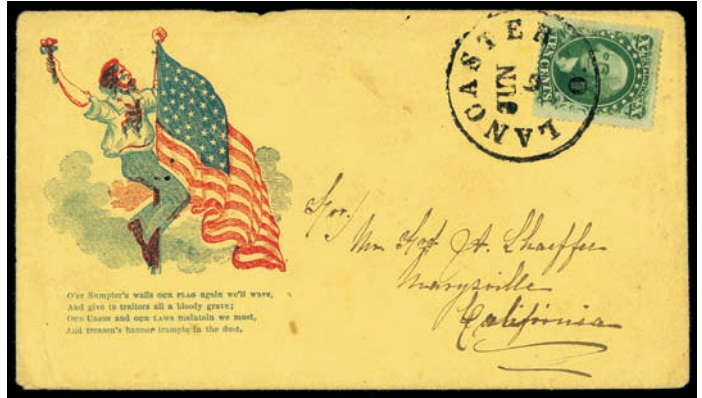 LANCASTER
O
JUN
TEN CENTS
O'er Sumpter's walls OUR FLAG again we'll wave,
And give to traitors all a bloody grave;
OUR UNION and OUR LAWS maintain we must,
And treason's banner trample in the dust.
For/
Marysville
California